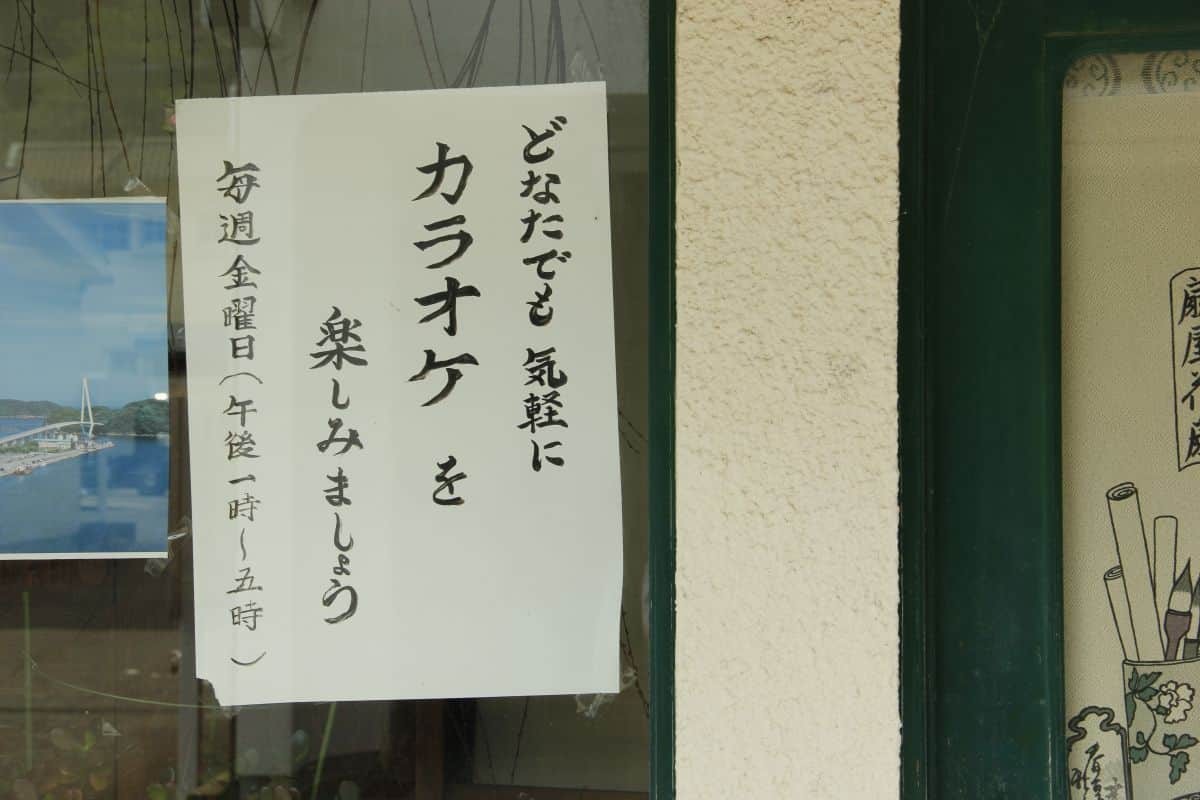 どなたでも気軽に
カラオケを
楽しみましょう
毎週金曜日(午後一時〜五時)